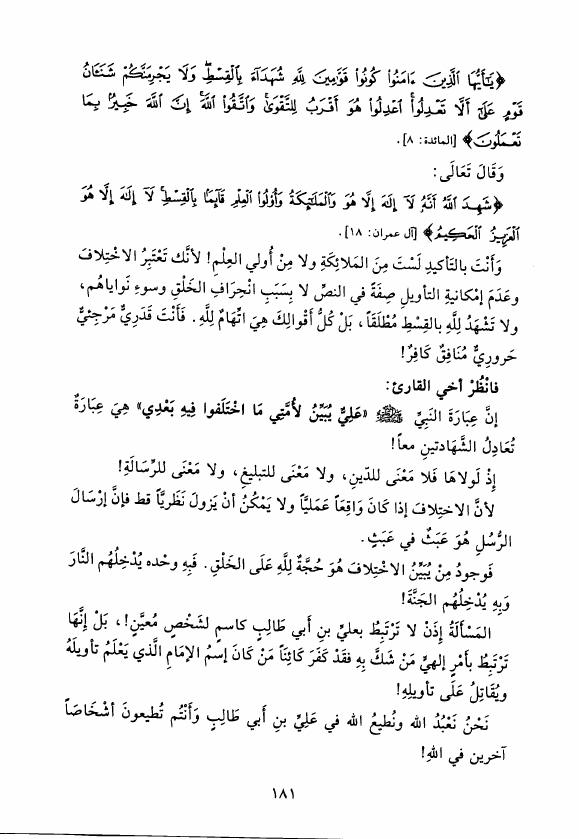 ﴿يَٰٓأَيُّهَا ٱلَّذِينَ ءَامَنُوا۟ كُونُوا۟ قَوَّٰمِينَ لِلَّهِ شُهَدَآءَ بِٱلْقِسْطِ ۖ وَلَا يَجْرِمَنَّكُمْ شَنَـَٔانُ
قَوْمٍ عَلَىٰٓ أَلَّا تَعْدِلُوا۟ ۚ ٱعْدِلُوا۟ هُوَ أَقْرَبُ لِلتَّقْوَىٰ ۖ وَٱتَّقُوا۟ ٱللَّهَ ۚ إِنَّ ٱللَّهَ خَبِيرٌۢ بِمَا
تَعْمَلُونَ﴾ [المائدة: ٨].
وَقَالَ تَعَالَى:
﴿شَهِدَ ٱللَّهُ أَنَّهُۥ لَآ إِلَٰهَ إِلَّا هُوَ وَٱلْمَلَٰٓئِكَةُ وَأُو۟لُوا۟ ٱلْعِلْمِ قَآئِمًۢا بِٱلْقِسْطِ ۚ لَآ إِلَٰهَ إِلَّا هُوَ
ٱلْعَزِيزُ ٱلْحَكِيمُ﴾ [آل عمران: ١٨].
وَأَنْتَ بالتأكيدِ لَسْتَ مِنَ المَلائِكَةِ ولا مِنْ أُولي العِلْمِ! لأنَّك تَعْتَبِرُ الاخْتِلافَ
وعَدَمَ إمْكانيةِ التأويلِ صِفَةً في النصِّ لا بِسَبَبِ انْحِرافِ الخَلْقِ وسوءِ نَواياهُم،
ولا تَشْهَدُ للَّهِ بالقِسْطِ مُطْلَقَاً، بَلْ كُلُّ أقْوالِكَ هِيَ اتِّهَامٌ للَّهِ. فَأنْتَ قَدَرِيٌّ مَرْجِئِيٌّ
حَرورِيٌّ مُنَافِقٌ كَافِرٌ!
فانْظُرْ أخي القارئ:
إنَّ عِبَارَةَ النبيِّ ﷺ «عَلِيٌّ يُبَيِّنُ لأُمَّتِي مَا اخْتَلَفوا فِيهِ بَعْدِي» هِيَ عِبَارَةٌ
تُعَادِلُ الشَّهَادتينِ معاً!
إذْ لَولاهَا فَلا مَعْنَى للدِّينِ، ولا مَعْنَى للتبليغِ، ولا مَعْنَى للرِّسَالَةِ!
لأنَّ الاخْتِلافَ إذا كَانَ وَاقِعَاً عَمَلِيَّاً ولا يَمْكُنُ أنْ يَزولَ نَظَرِيَّاً قط فإنَّ إرْسَالَ
الرُّسُلِ هُوَ عَبَثٌ في عَبَثٍ.
فَوجودُ مِنْ يُبَيِّنُ الاخْتِلافَ هُوَ حُجَّةٌ للَّهِ عَلَى الخَلْقِ. فَبِهِ وحْده يُدْخِلُهُم النَّارَ
وَبِهِ يُدْخِلُهُم الجَنَّةَ!
المَسْألَةُ إذَن لا تَرْتَبِطُ بعليِّ بنِ أبي طَالِبٍ كاسمٍ لشَخْصٍ مُعَيَّنٍ!، بَلْ إنَّهَا
تَرْتَبِطُ بأمْرٍ إلهيٍّ مَنْ شَكَّ بِهِ فَقَدْ كَفَرَ كَائِنَاً مَنْ كَانَ إسْمُ الإمَامِ الَّذي يَعْلَمُ تأويلَهُ
ويُقَاتِلُ عَلَى تأويلِهِ!
نَحْنُ نَعْبُدُ الله ونُطيعُ الله في عَلِيِّ بنِ أبي طَالبٍ وَأنْتُم تُطيعونَ أشْخَاصَاً
آخرين في اللهِ!
١٨١